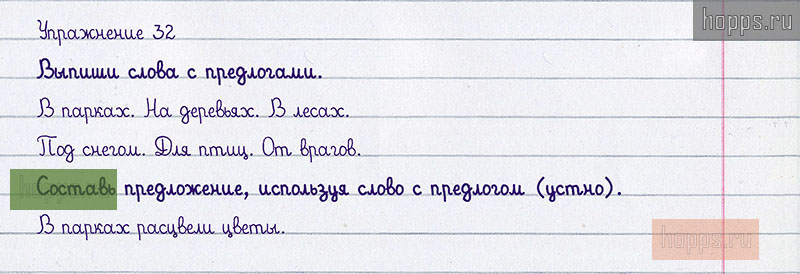 hopps.ru
Упражнение 32
Выпиши слова с предлогами.
В парках. На деревьях. В лесах.
Под снегом. Для птиц. От врагов.
Составь предложение, используя слово с предлогом (устно).
В парках расцвели цветы.
hopps.ru